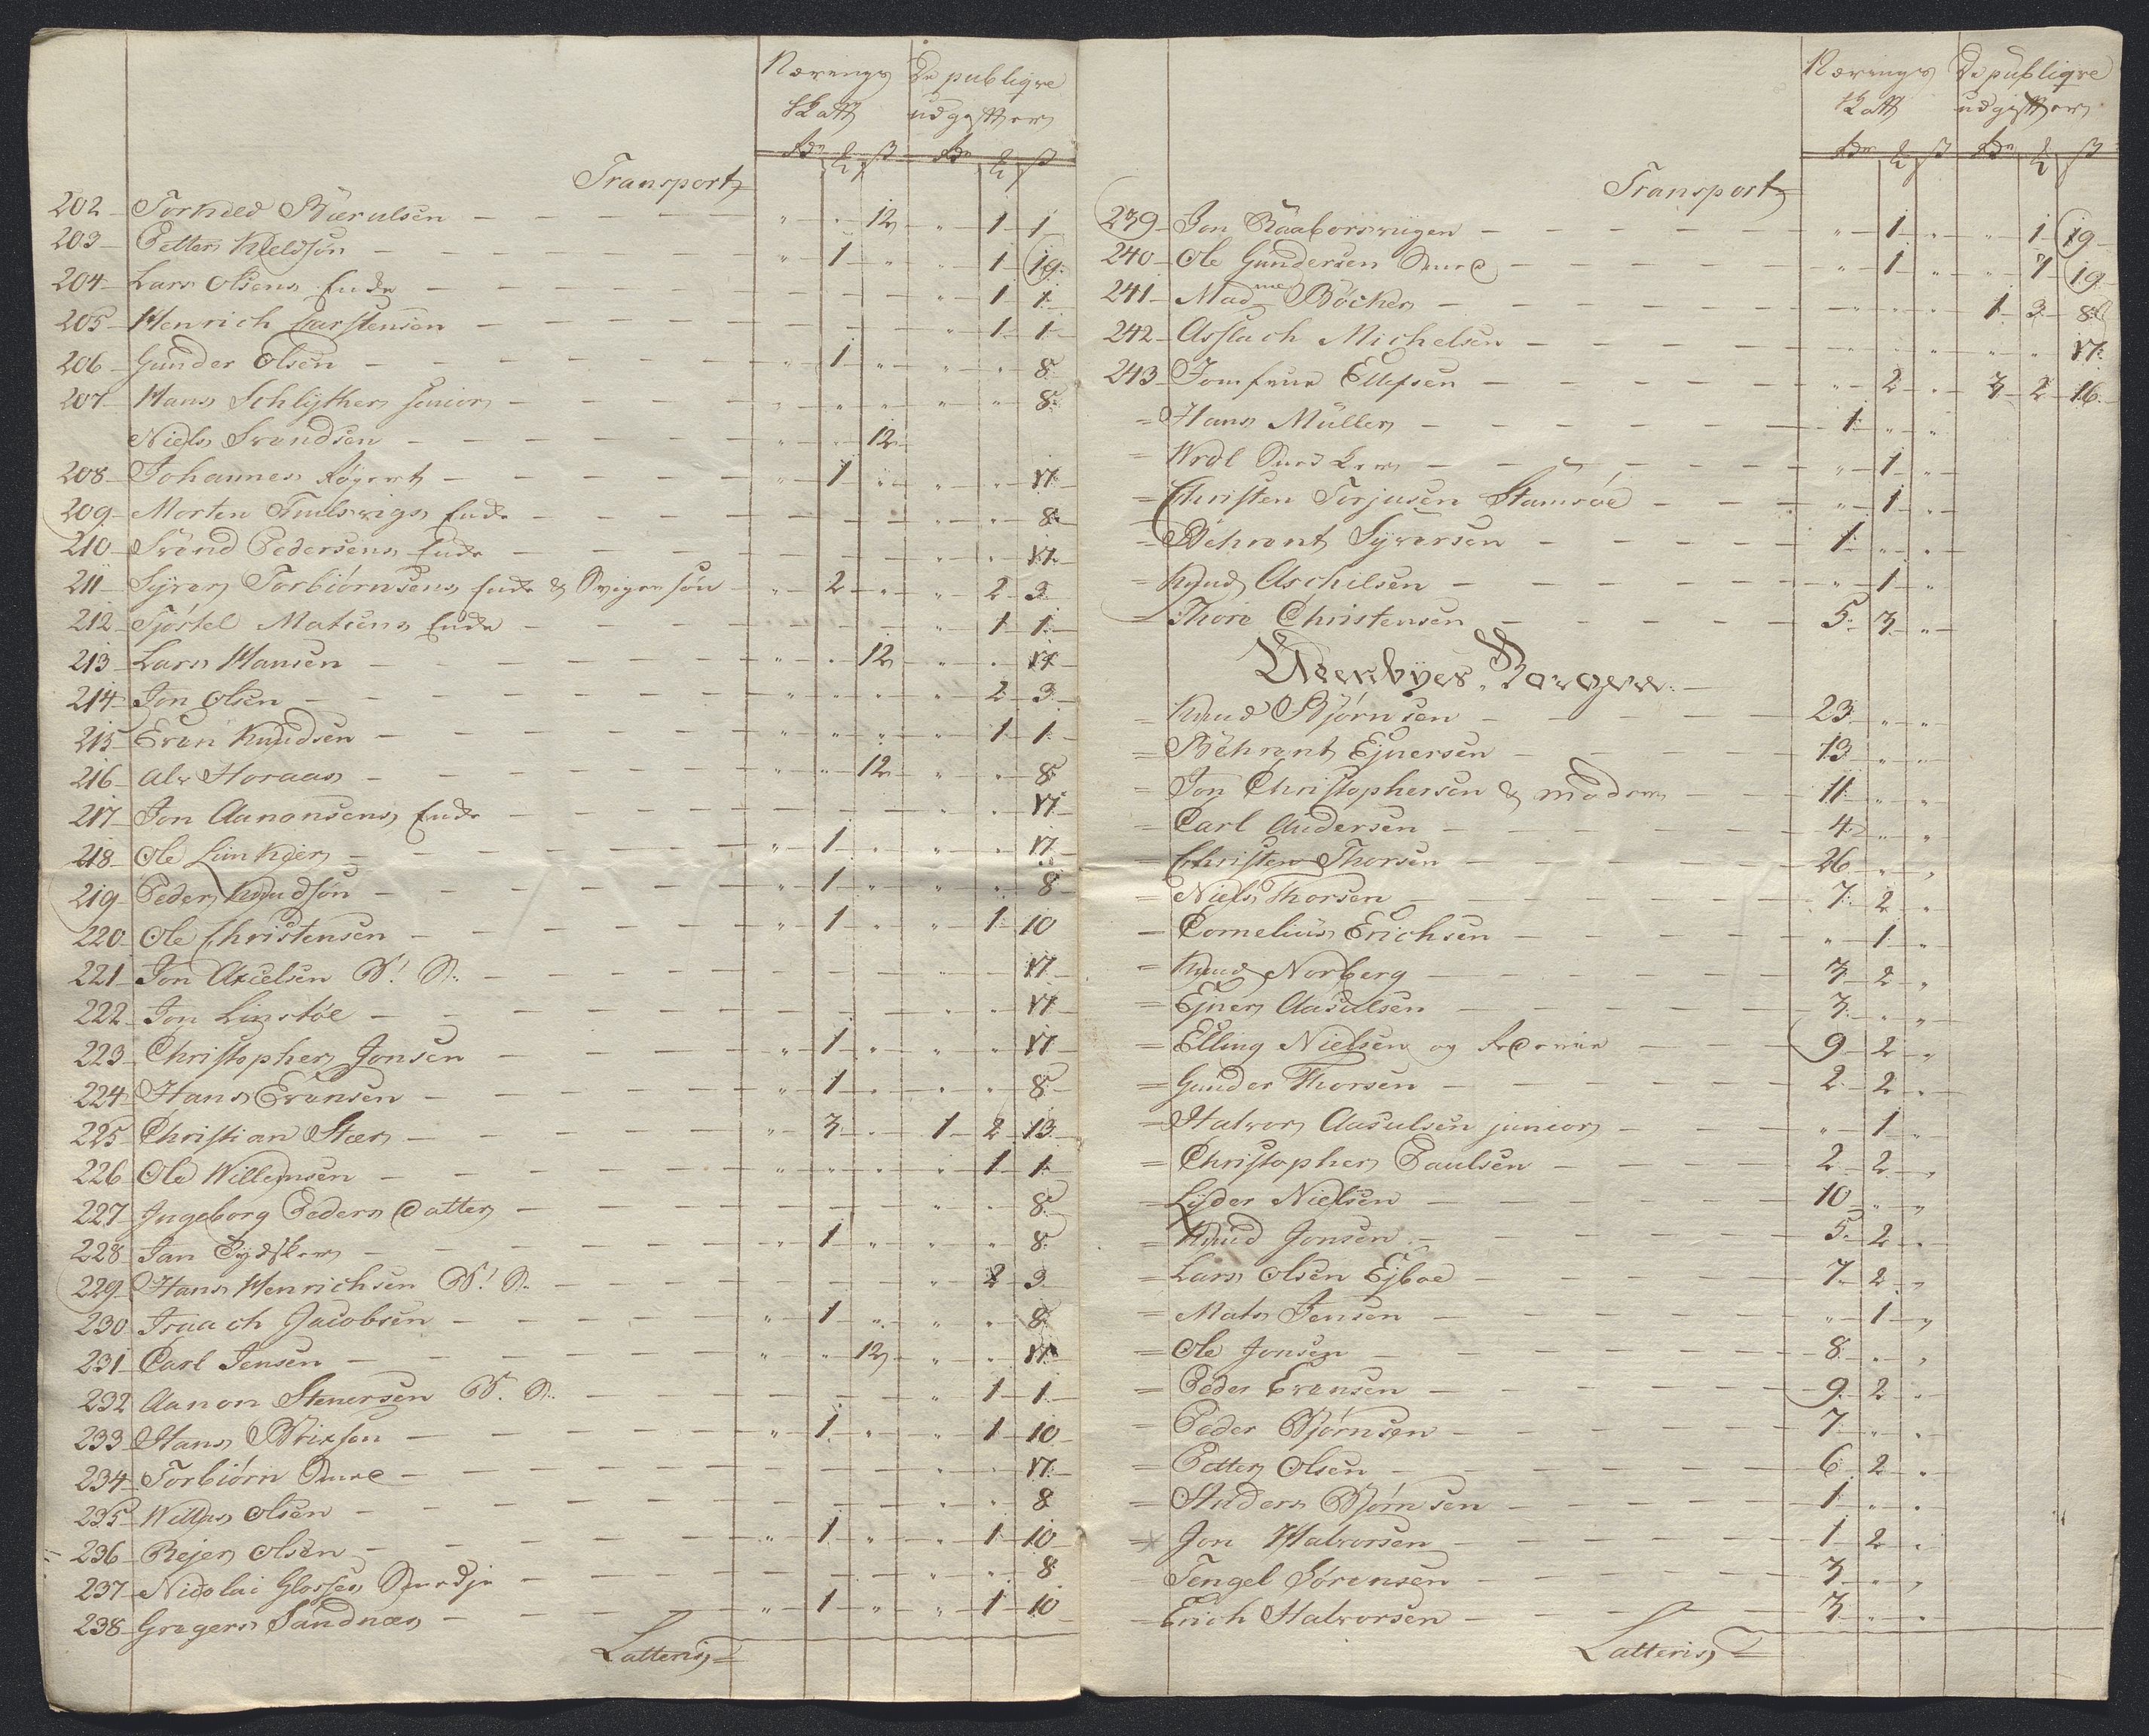 Nærings De publiqve
Skatt udgifter
Rdr ß Rdr ß
Transport
202 Torkild Bærulsen " " 12 " 1 1
203 Petter Kieldsøn " 1 " " 1 19
204 Lars Olsens Enke " 1 1
205 Henrich Carstensen " 1 1
206 Gunder Olsen " 1 " " " 8
207 Hans Schlyther senior " " " " " 8
Niels Svendsen " " 12
208 Johannes Røgert " 1 " " " 17
209 Morten Enke " " 8
210 Trond Pedersens Enke " " 17
211 Syver Torbiørnsens Enke & Svigersøn " 2 " " 2 3
212 Tjøstel Matiens Enke " 1 1
213 Lars Hansen " " 12 " " 17
214 Jon Olsen " " " " 2 3
215 Even Knudsen " " " " 1 1
216 Alv Horaas " " 12 " " 8
217 Jon Aanonsens Enke " " 17
218 Ole Limkier " 1 " " " 17
219 Peder Knudsøn " 1 " " " 8
220 Ole Christensen " 1 " " 1 10
221 Jon Axelsen " " 17
222 Jon Linstøe " " 17
223 Christopher Jonsen " 1 " " " 17
224 Hans Evensen " 1 " " " 8
225 Christian Stær " 3 " 1 2 13
226 Ole Willemsen " " " " 1 1
227 Ingeborg Peders Datter " " 8
228 Jan Tydsker " 1 " " " 8
229 Hans Henrichsen " 2 3
230 Isaach Jacobsen " 1 " " " 8
231 Carl Jensen " " 12 " " 17
232 Aanon Stenersen " 1 1
233 Hans Brixsen " 1 " " 1 10
234 Torbiørn " " 17
235 Willas Olsen " " 8
236 Rejer Olsen " 1 " " 1 10
237 Nicolai " " 8
238 Gregers Sandnæs " 1 " " 1 10
Latteris
Nærings De publiqve
Skatt udgifter
Rdr ß Rdr ß
Transport
239 Jon Raaborsvigen " 1 " " 1 19
240 Ole Gundersen " 1 " " 1 19
241 Madme Böcker " " " 1 3 8
242 Asslach Michelsen " " " " " 17
243 Jomfrue Ellefsen " 2 " 3 2 16
= Hans Müller 1 " "
= " 1 "
= Christen Torjusen Stamsøe " 1 "
= Behrent Syversen 1 " "
= Knud Aschilsen " 1 "
= Thore Christensen 5 3 "
Udenbyes Borgere
= Knud Bjørnsen 23 " "
= Behrent Ejnersen 13 " "
= Jon Christophersen & moder 11 " "
= Carl Andersen 4 " "
= Christen Thorsen 26 " "
= Niels Thorsen 7 2 "
= Cornelius Erichsen " 1 "
= Knud Norberg 3 2 "
= Ejner Aasulsen 3 " "
= Elling Nielsen og 9 2 "
= Gunder Thorsen 2 2 "
= Halvor Aasulsen junior " 1 "
= Christopher Paulsen 2 2 "
= Lyder Nielsen 10 " "
= Knud Jonsen 5 2 "
= Lars Olsen Ejboe 7 2 "
= Mats Jensen " 1 "
= Ole Jonsen 8 " "
= Peder Evensen 9 2 "
= Peder Bjørnsen 7 " "
= Petter Olsen 6 2 "
= Anders Bjørnsen 1 " "
= Jon Halvorsen 1 2 "
Tengel Sørensen 3 " "
= Erich Halvorsen 3 " "
Latteris